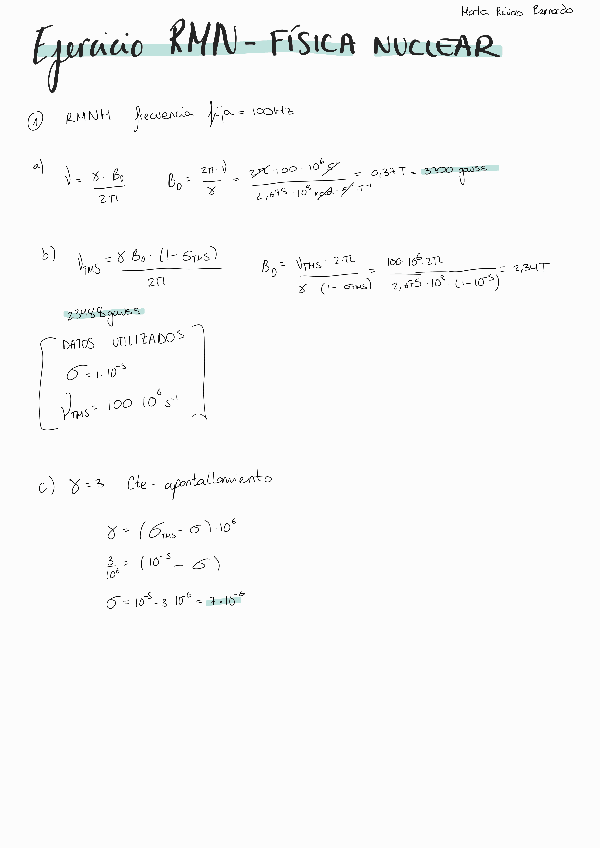 Marta Rubio Bernardo
Ejercicio RMN - FÍSICA NUCLEAR
① RMNH frecuencia fija = 100Hz
a) ν = γ · B₀ / 2π   B₀ = 2π · ν / γ = 2π · 100 · 10⁶ s⁻¹ / 2,675 · 10⁸ rad · s⁻¹ T⁻¹ = 0,37 T = 3700 gauss
b) ν_TMS = γ B₀ · (1 - σ_TMS) / 2π   B₀ = ν_TMS · 2π / γ (1 - σ_TMS) = 100 · 10⁶ · 2π / 2,675 · 10⁸ (1 - 10⁻⁵) = 2,34 T
23488 gauss
DATOS UTILIZADOS
σ = 1 · 10⁻⁵
ν_TMS = 100 · 10⁶ s⁻¹
c) γ = 3 Cte. apantallamiento
γ = (σ_TMS - σ) · 10⁶
3 / 10⁶ = (10⁻⁵ - σ)
σ = 10⁻⁵ - 3 · 10⁻⁶ = 7 · 10⁻⁶